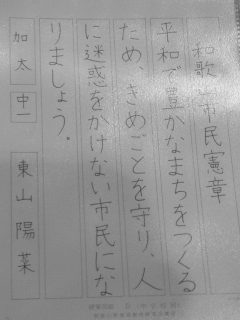 和歌山市民憲章
平和で豊かなまちをつくる
ため、きめごとを守り、人
に迷惑をかけない市民にな
りましょう。
加太 中一 東山陽菜